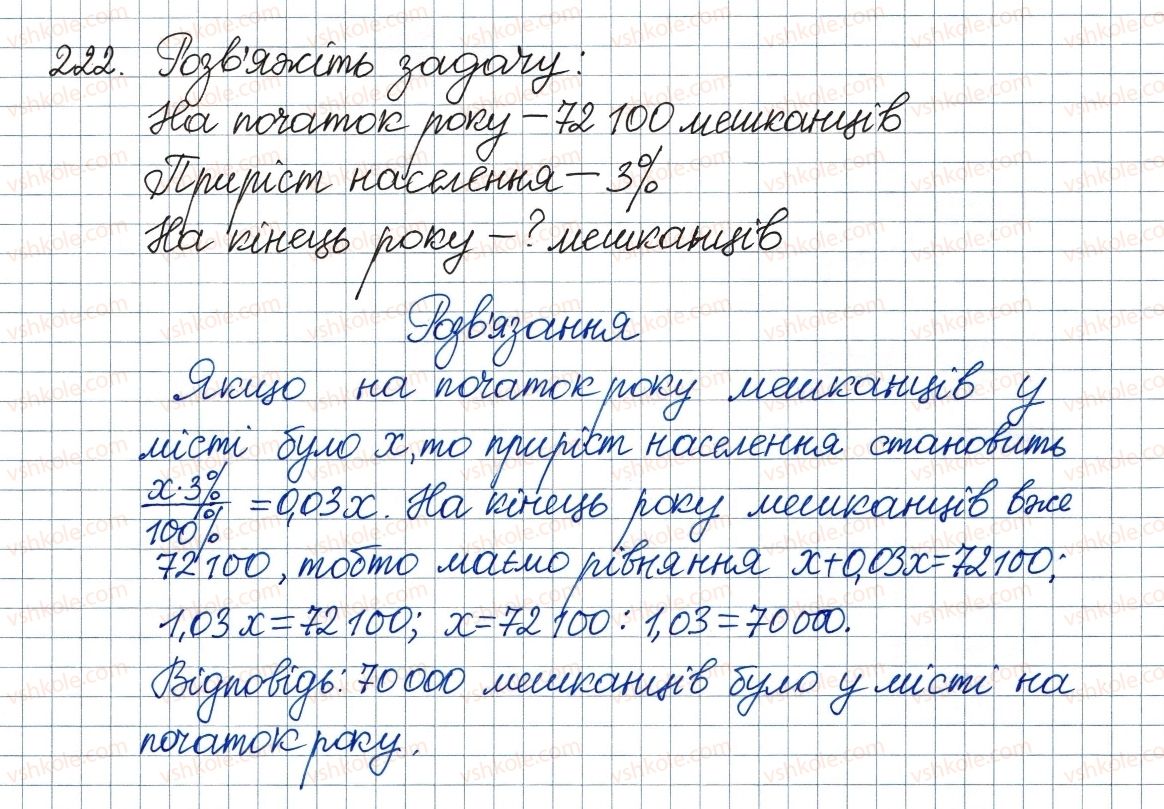 222. Розв'яжіть задачу:
На початок року – 72 100 мешканців
Приріст населення – 3%
На кінець року – ? мешканців
Розв'язання
Якщо на початок року мешканців у
місті було х, то приріст населення становить
х·3%/100% = 0,03х. На кінець року мешканців вже
72 100, тобто маємо рівняння х+0,03х=72100;
1,03х=72 100; х=72 100 : 1,03 = 70 000.
Відповідь: 70 000 мешканців було у місті на
початок року.